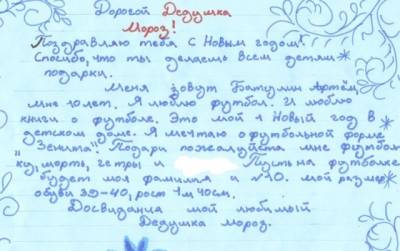 Дорогой Дедушка
Мороз!
Поздравляю тебя с Новым годом!
Спасибо, что ты делаешь всем детям
подарки.
Меня зовут Батулин Артём,
мне 10 лет. Я люблю футбол. И люблю
книги о футболе. Это мой 1 Новый год в
детском доме. Я мечтаю о футбольной форме
"Зенита". Подари пожалуйста мне футбол-
ку, шорты, гетры и Пусть на футболке
будет моя фамилия и №10. Мой размер
обуви 39-40, рост 1м 40см.
Досвидания мой любимый
Дедушка Мороз.